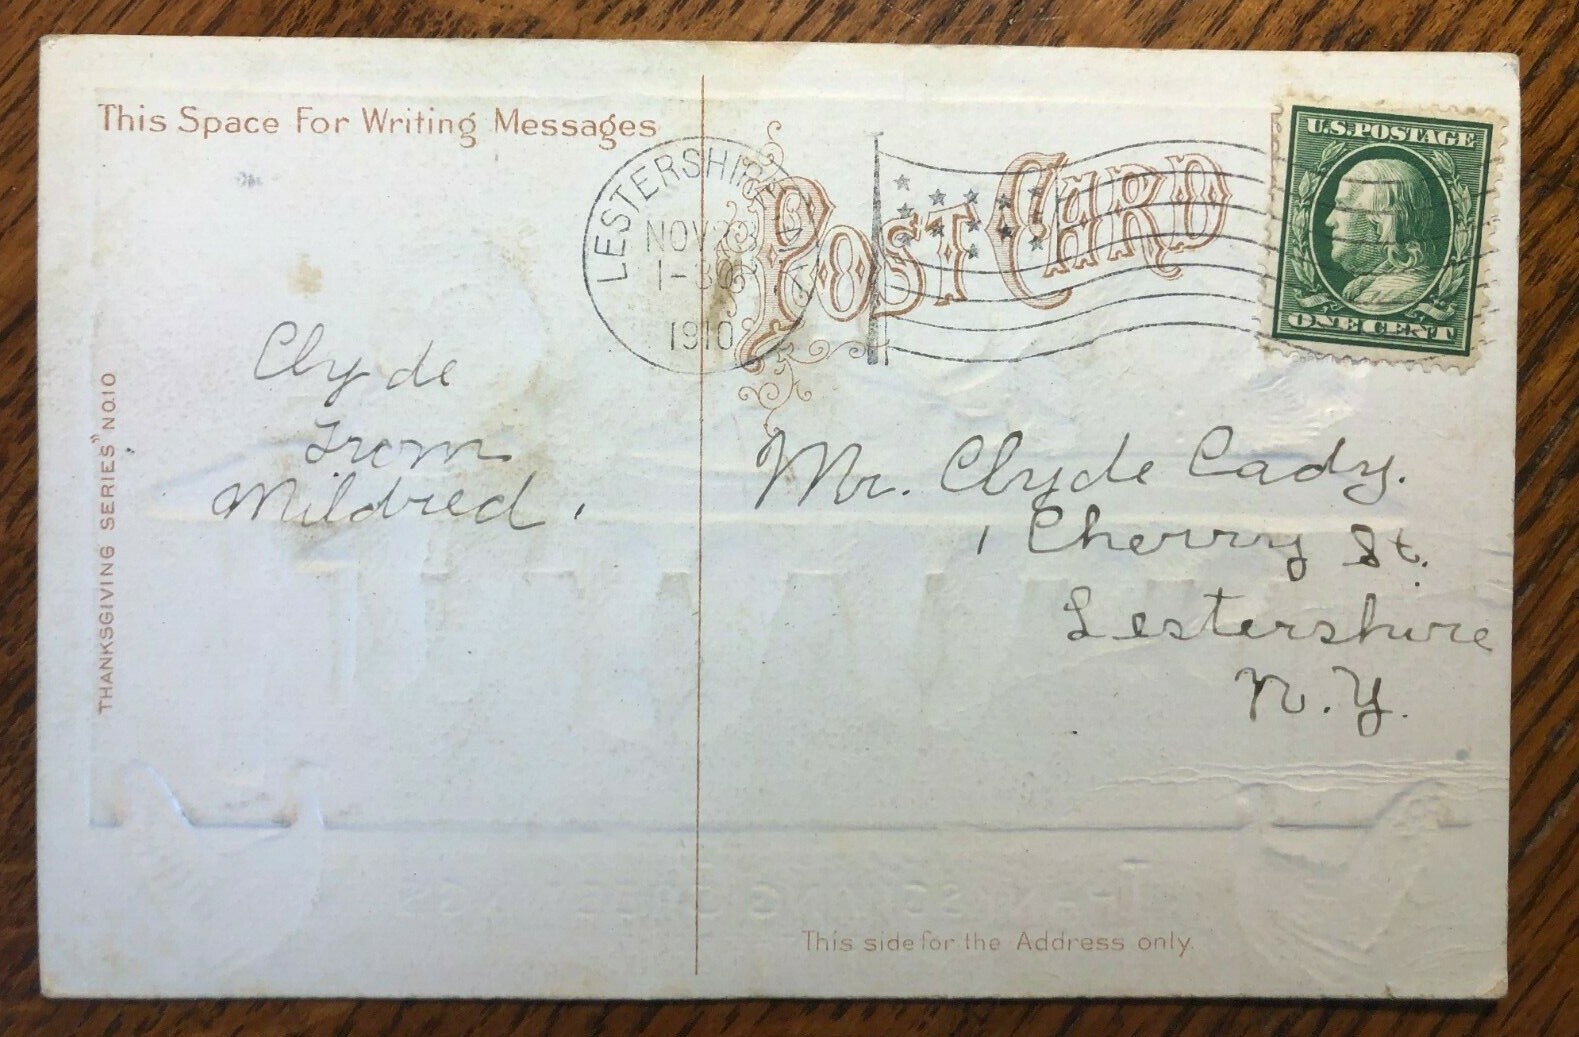 This Space For Writing Messages
THANKSGIVING SERIES" NO.10
Clyde
From
Mildred.
POST CARD
LESTERSHIRE
NOV
1-30
1910
U.S. POSTAGE
ONE CENT
Mr. Clyde Cady.
1 Cherry St.
Lestershire
N.Y.
THANKSGIVING GREETINGS
This side for the Address only.